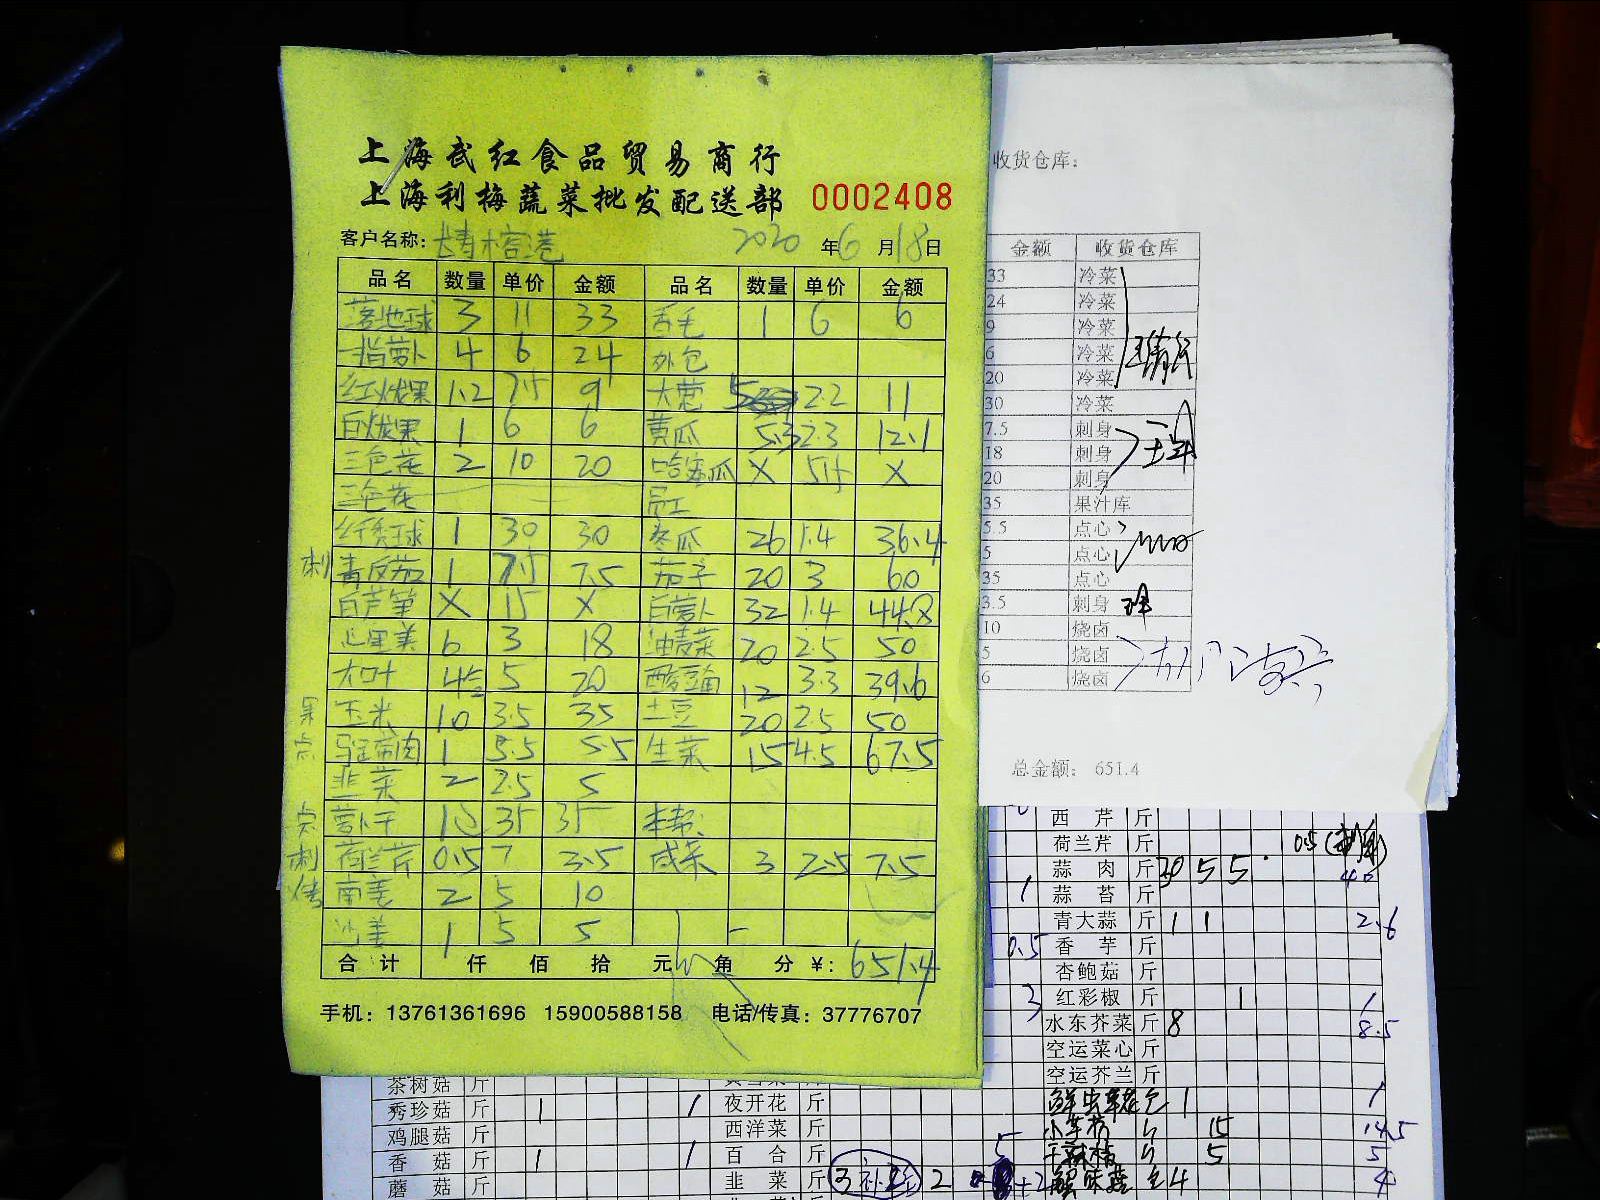 上海武红食品贸易商行
上海利梅蔬菜批发配送部 0002408
客户名称： 2020 年 6 月 18 日
品名 数量 单价 金额 品名 数量 单价 金额
落地球 3 11 33 舌毛 1 6 6
一指萝卜 4 6 24 外包
红火龙果 1.2 7.5 9 大葱 5 2.2 11
白火龙果 1 6 6 黄瓜 5.3 2.3 12.1
三色花 2 10 20 哈密瓜 X X
三色花
红绣球 1 30 30 冬瓜 26 1.4 36.4
刺 青反茄 1 7.5 7.5 茄子 20 3 60
白芦笋 X 15 X 白萝卜 32 1.4 44.8
心里美 6 3 18 油麦菜 20 2.5 50
大叶 4 5 20 酸豆角 12 3.3 39.6
果 玉米 10 3.5 35 土豆 20 2.5 50
点 马蹄肉 1 5.5 5.5 生菜 15 4.5 67.5
韭菜 2 2.5 5
点 萝卜干 35 35
刺 荷兰芹 0.5 7 3.5 咸菜 3 2.5 7.5
南姜 2 5 10
沙姜 1 5 5
合计 仟 佰 拾 元 角 分 ¥: 651.4
手机：13761361696 15900588158 电话/传真：37776707
收货仓库：
金额 收货仓库
33 冷菜
24 冷菜
9 冷菜
6 冷菜
20 冷菜
30 冷菜
7.5 刺身
18 刺身
20 刺身
35 果汁库
5.5 点心
5 点心
35 点心
3.5 刺身
10 烧卤
5 烧卤
6 烧卤
总金额： 651.4
西芹 斤
荷兰芹 斤 0.5
蒜肉 斤 30 5 5 40
1 蒜苔 斤
青大蒜 斤 1 1 2.6
0.5 香芋 斤
杏鲍菇 斤
3 红彩椒 斤 1 1
水东芥菜 斤 8 8.5
空运菜心 斤
空运芥兰 斤
茶树菇 斤
秀珍菇 斤 1 1 夜开花 斤 鲜虫草花 1 1
鸡腿菇 斤 西洋菜 斤 15 14.5
香菇 斤 1 1 百合 斤 5 5 5
蘑菇 斤 韭菜 斤 2 蟹味菇 4 4